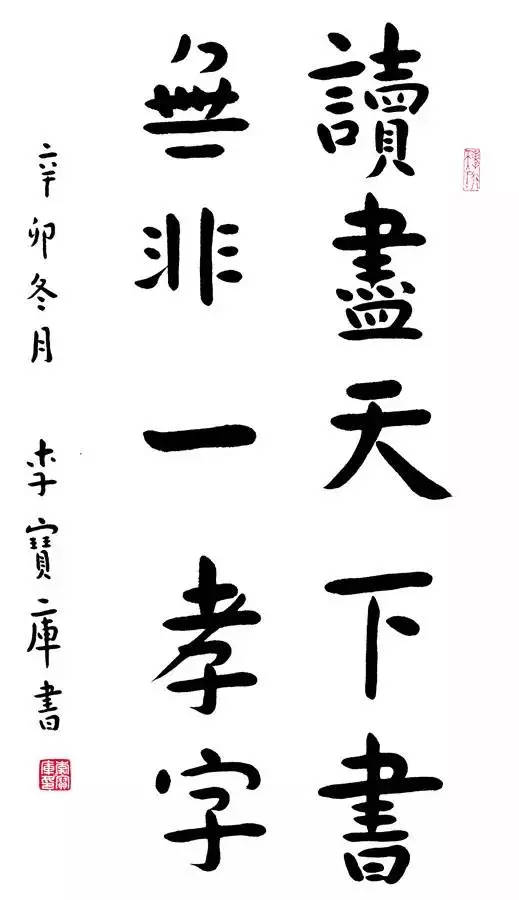 讀盡天下書
無非一孝字
辛卯冬月 李寶庫書